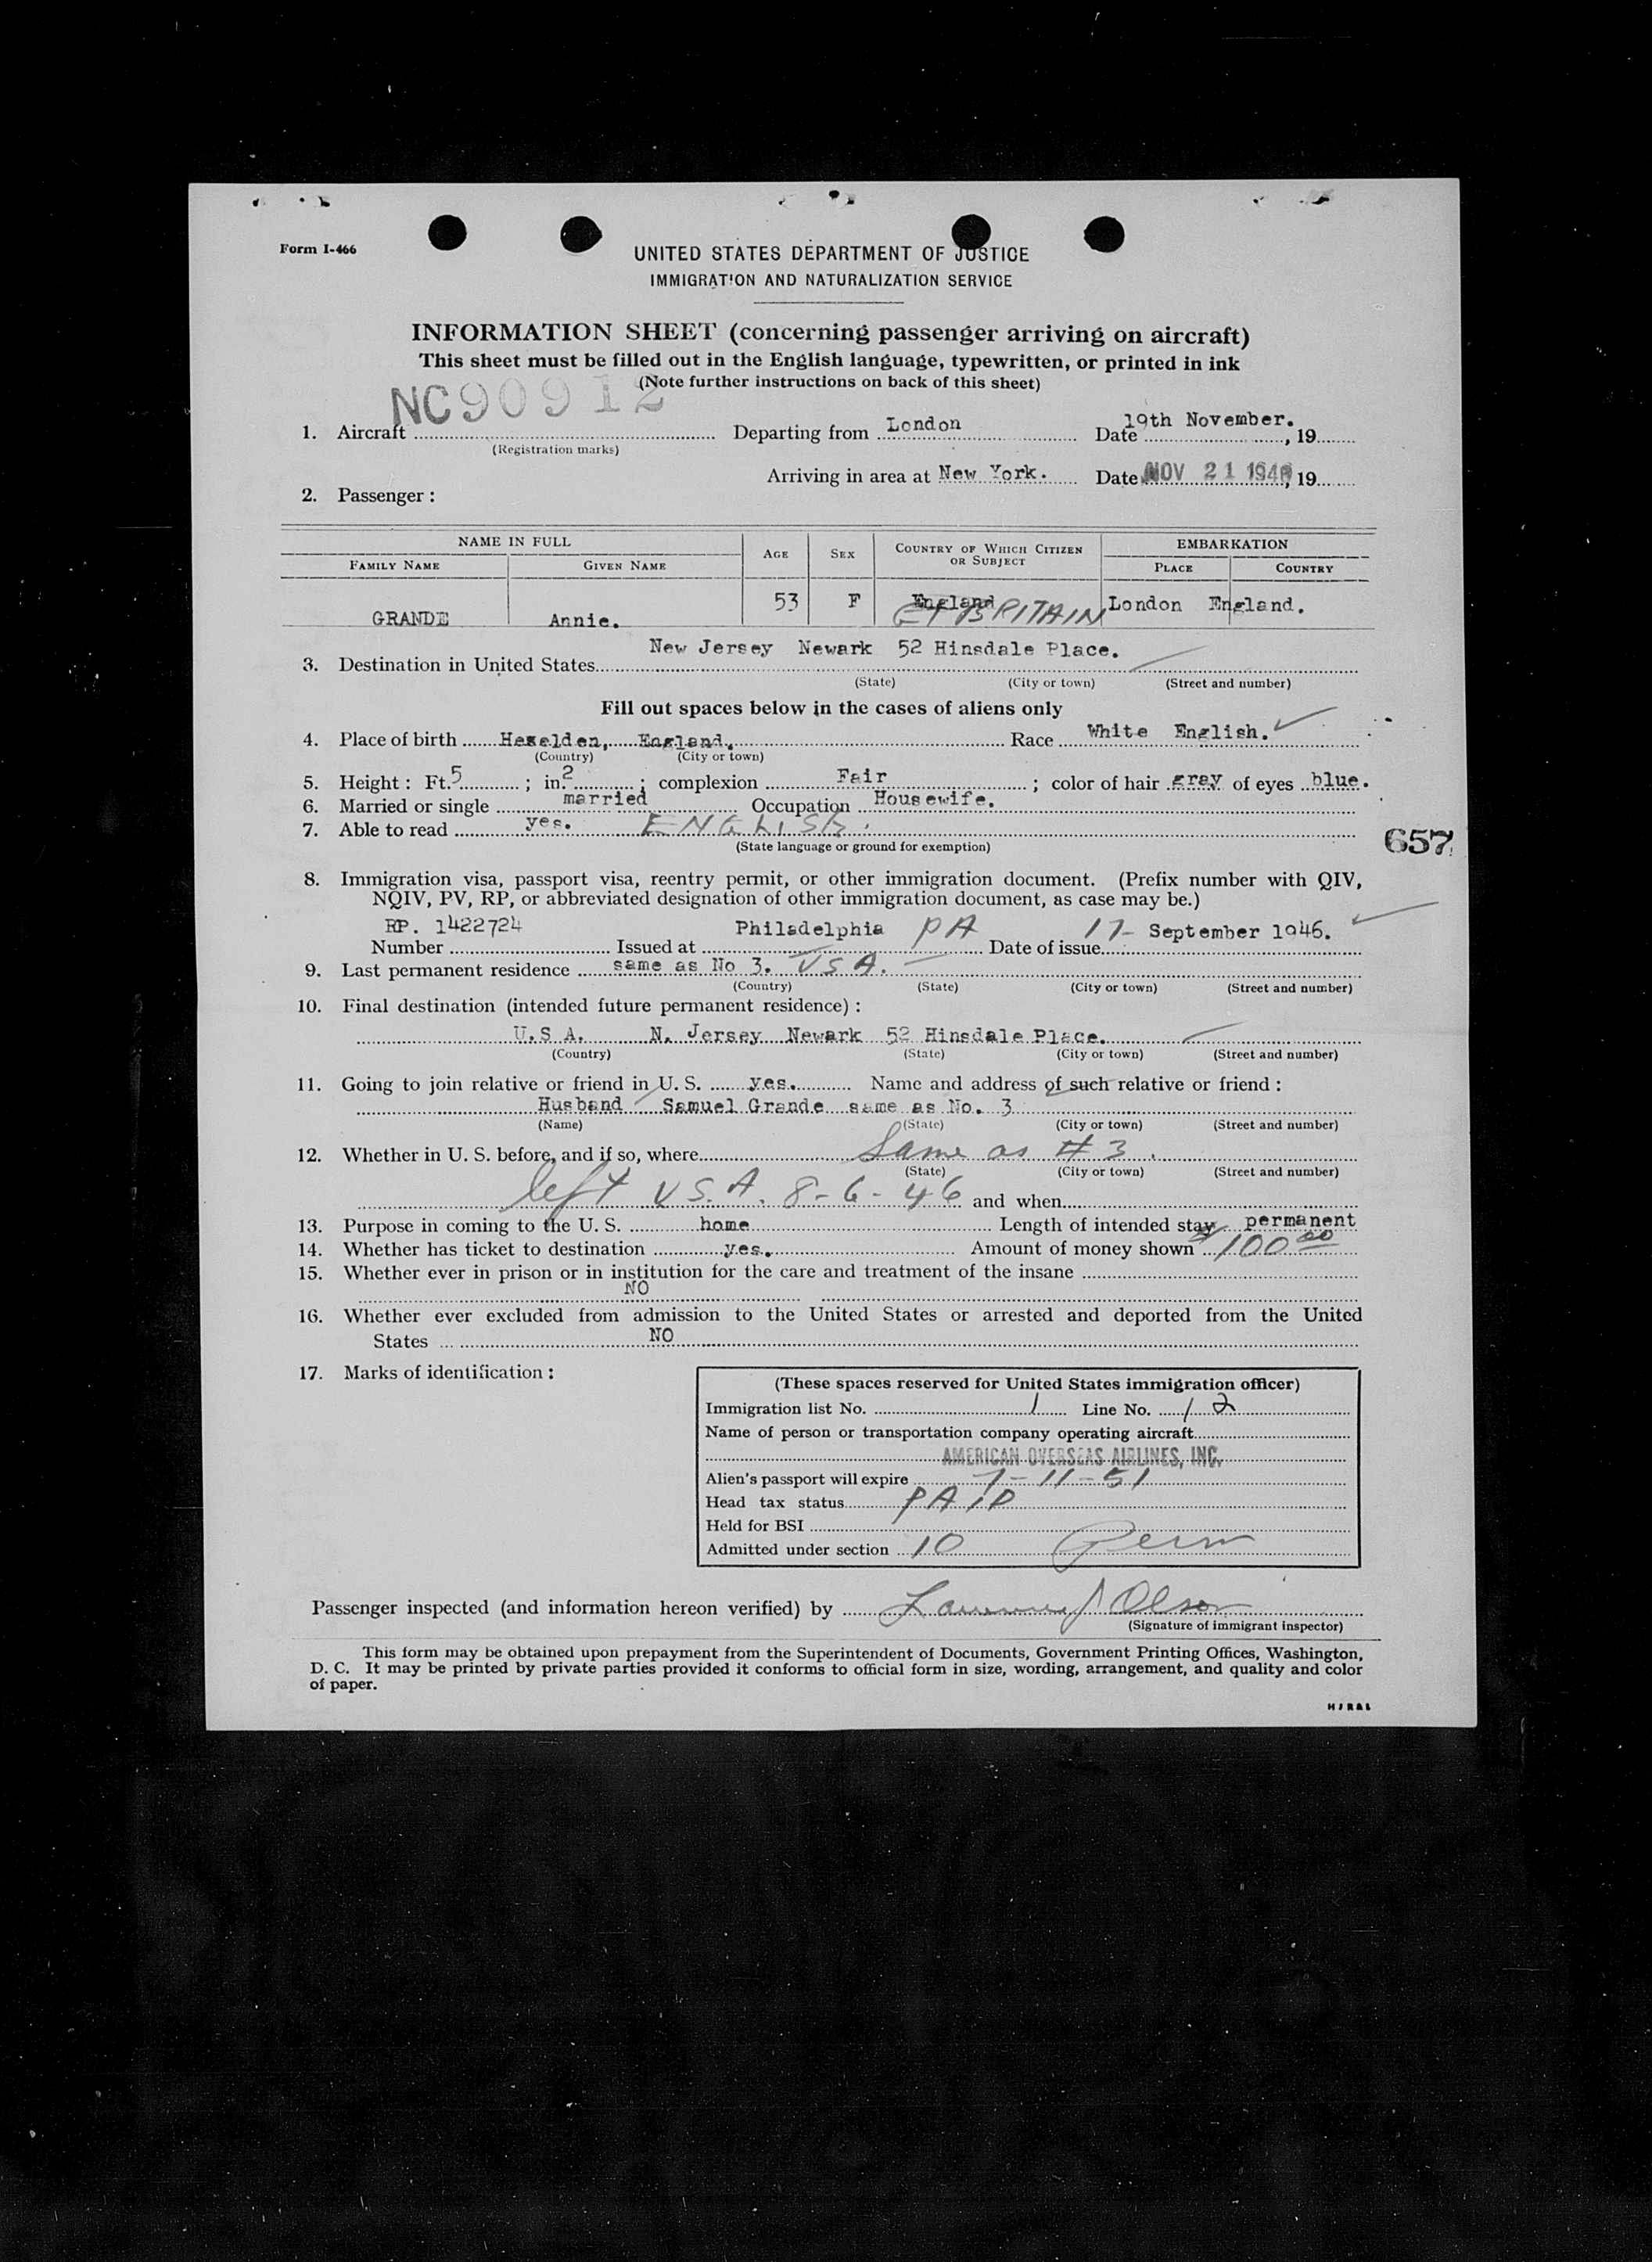 Form I-466
UNITED STATES DEPARTMENT OF JUSTICE
IMMIGRATION AND NATURALIZATION SERVICE
INFORMATION SHEET (concerning passenger arriving on aircraft)
This sheet must be filled out in the English language, typewritten, or printed in ink
(Note further instructions on back of this sheet)
NC90912
1. Aircraft Departing from London Date 19th November. , 19
(Registration marks)
Arriving in area at New York. Date NOV 21 1946, 19
2. Passenger :
NAME IN FULL AGE SEX COUNTRY OF WHICH CITIZEN OR SUBJECT EMBARKATION
FAMILY NAME GIVEN NAME PLACE COUNTRY
GRANDE Annie. 53 F England GT BRITAIN London England.
New Jersey Newark 52 Hinsdale Place.
3. Destination in United States
(State) (City or town) (Street and number)
Fill out spaces below in the cases of aliens only
4. Place of birth Heselden, England. Race White English.
(Country) (City or town)
5. Height : Ft. 5 ; in. 2 ; complexion Fair ; color of hair gray of eyes blue.
6. Married or single married Occupation Housewife.
7. Able to read yes. ENGLISH.
(State language or ground for exemption)
657
8. Immigration visa, passport visa, reentry permit, or other immigration document. (Prefix number with QIV,
NQIV, PV, RP, or abbreviated designation of other immigration document, as case may be.)
RP. 1422724 Philadelphia PA 17- September 1946.
Number Issued at Date of issue
9. Last permanent residence same as No 3. USA.
(Country) (State) (City or town) (Street and number)
10. Final destination (intended future permanent residence) :
U.S A. N. Jersey Newark 52 Hinsdale Place.
(Country) (State) (City or town) (Street and number)
11. Going to join relative or friend in U. S. yes. Name and address of such relative or friend :
Husband Samuel Grande same as No. 3
(Name) (State) (City or town) (Street and number)
12. Whether in U. S. before, and if so, where Same as # 3.
(State) (City or town) (Street and number)
left U.S.A. 8-6-46 and when
13. Purpose in coming to the U. S. home Length of intended stay permanent
14. Whether has ticket to destination yes. Amount of money shown $100 00
15. Whether ever in prison or in institution for the care and treatment of the insane
NO
16. Whether ever excluded from admission to the United States or arrested and deported from the United
States NO
17. Marks of identification :
(These spaces reserved for United States immigration officer)
Immigration list No. 1 Line No. 12
Name of person or transportation company operating aircraft
AMERICAN OVERSEAS AIRLINES, INC.
Alien's passport will expire 7-11-51
Head tax status PAID
Held for BSI
Admitted under section 10 Perm
Passenger inspected (and information hereon verified) by J Olson
(Signature of immigrant inspector)
This form may be obtained upon prepayment from the Superintendent of Documents, Government Printing Offices, Washington,
D. C. It may be printed by private parties provided it conforms to official form in size, wording, arrangement, and quality and color
of paper.